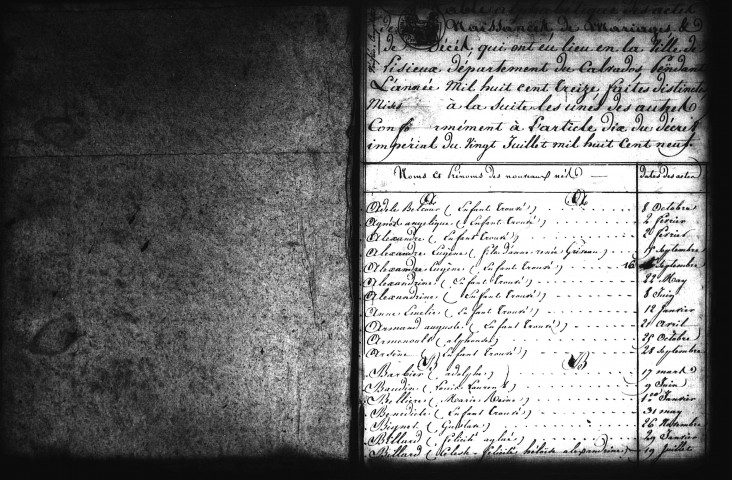 Table alphabétique des actes
de Naissances de Mariages &
de Décès qui ont eu lieu en la Ville de
Lisieux département du Calvados, pendant
L'année Mil huit Cent treize faites distinctes
Mises à la suite les unes des autres
Conformément à l'article dix du décret
impérial du Vingt Juillet mil huit Cent neuf.
Noms et Prénoms des nouveaux nés dates des actes
A A
Adele (Enfant trouvé) 8 Octobre
Agnès angélique (Enfant trouvé) 2 février
Alexandre (Enfant trouvé) 2 février
Alexandre Eugène (fils d'anne renée) Septembre
Alexandre Eugène (Enfant trouvé) 16 Septembre
Alexandrine (Enfant trouvé) 22 May
Alexandrine (Enfant trouvé) 8 Juin
Anne Emelie (Enfant trouvé) 12 Janvier
Armand auguste (Enfant trouvé) 21 avril
(alphonse) 25 Octobre
Arsène (Enfant trouvé) 28 Septembre
B B
Barbier (adolphe) 17 mars
Baudin (Louis Laurent) 9 Juin
Bellière (Marie Reine) 1er Janvier
Bénédicte (Enfant trouvé) 31 may
Bignet (Gustave) 26 Novembre
Billard (félicité aglaé) 29 Janvier
Billard (félicité héloïse alexandrine) 19 Juillet